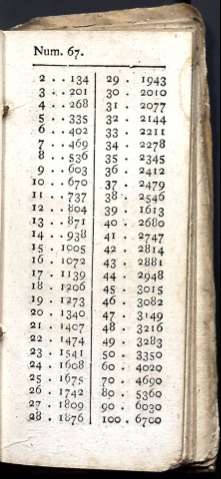 Num. 67.
2 . . 134
3 . . 201
4 . . 268
5 . . 335
6 . . 402
7 . . 469
8 . . 536
9 . . 603
10 . . 670
11 . . 737
12 . . 804
13 . . 871
14 . . 938
15 . 1005
16 . 1072
17 . 1139
18 . 1206
19 . 1273
20 . 1340
21 . 1407
22 . 1474
23 . 1541
24 . 1608
25 . 1675
26 . 1742
27 . 1809
28 . 1876
29 . 1943
30 . 2010
31 . 2077
32 . 2144
33 . 2211
34 . 2278
35 . 2345
36 . 2412
37 . 2479
38 . 2546
39 . 1613
40 . 2680
41 . 2747
42 . 2814
43 . 2881
44 . 2948
45 . 3015
46 . 3082
47 . 3149
48 . 3216
49 . 3283
50 . 3350
60 . 4020
70 . 4690
80 . 5360
90 . 6030
100 . 6700